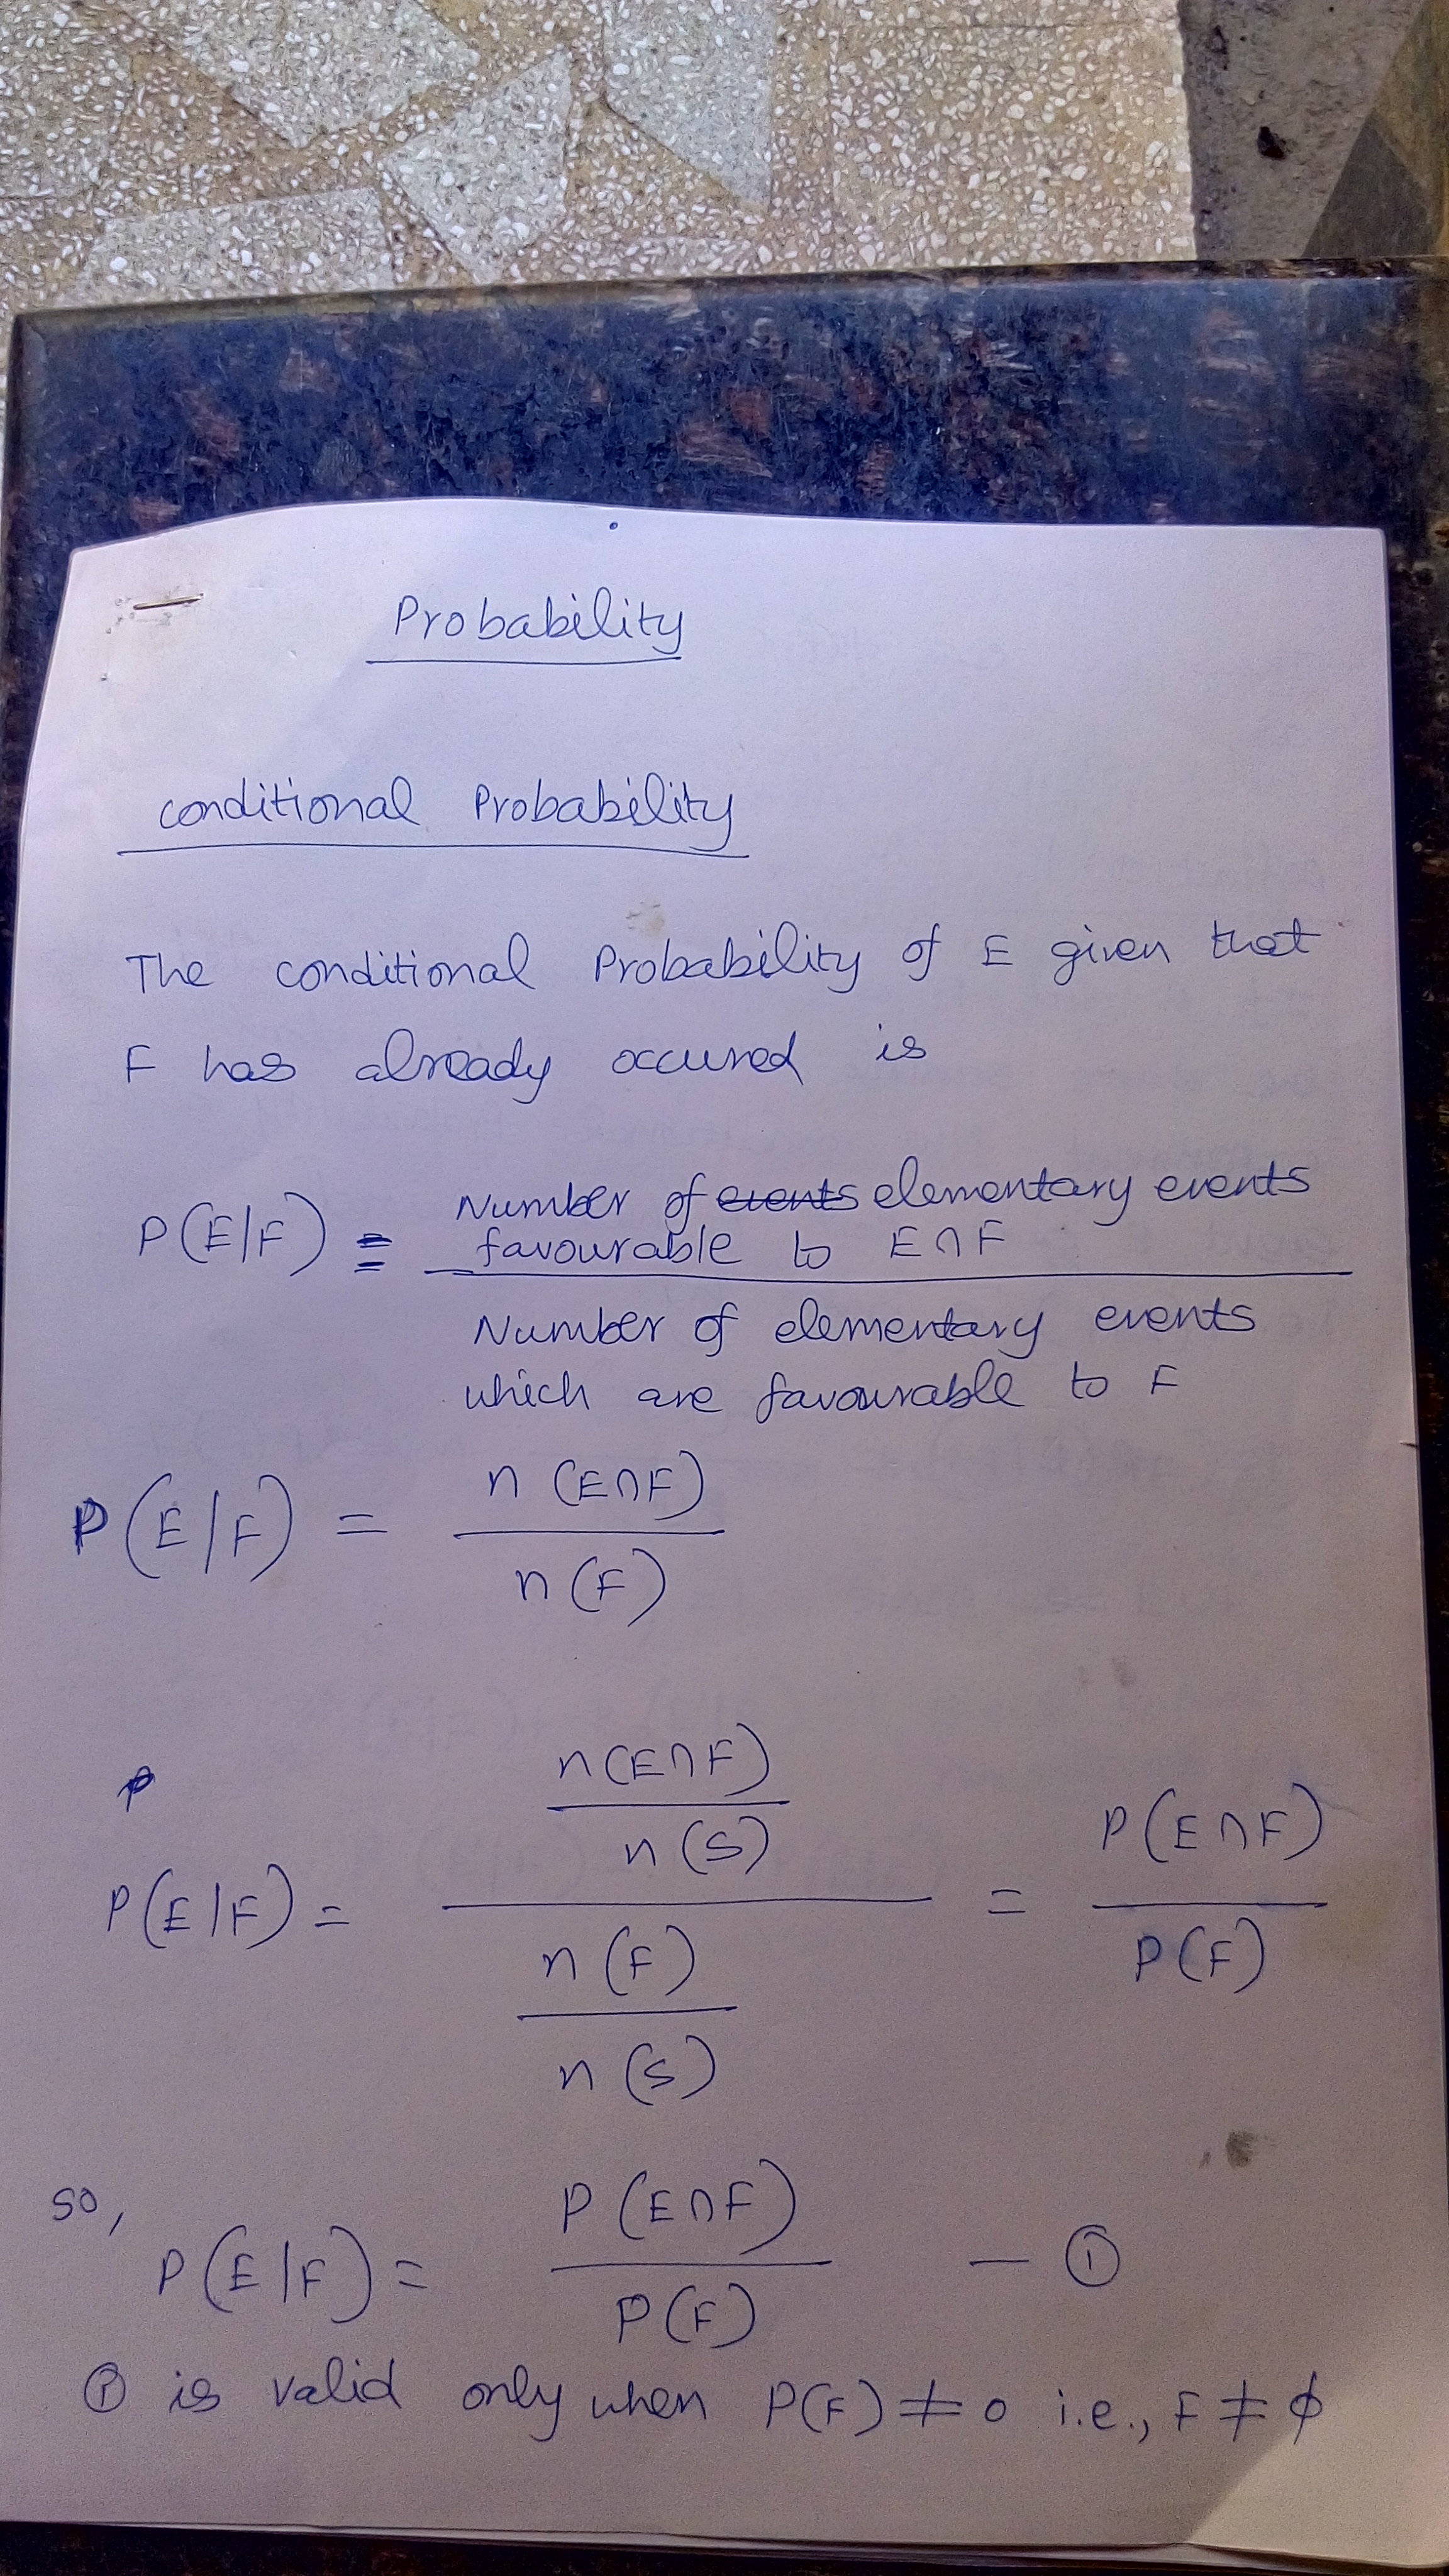 Probability
conditional Probability
The conditional Probability of E given that
F has already occured is
P(E|F) = Number of events elementary events
favourable to E∩F
Number of elementary events
which are favourable to F
P(E/F) = n(E∩F)
n(F)
P
n(E∩F)
n(S)
P(E|F) = = P(E∩F)
P(F)
n(F)
n(S)
so,
P(E|F) = P(E∩F) — ①
P(F)
① is valid only when P(F) ≠ 0 i.e., F ≠ φ